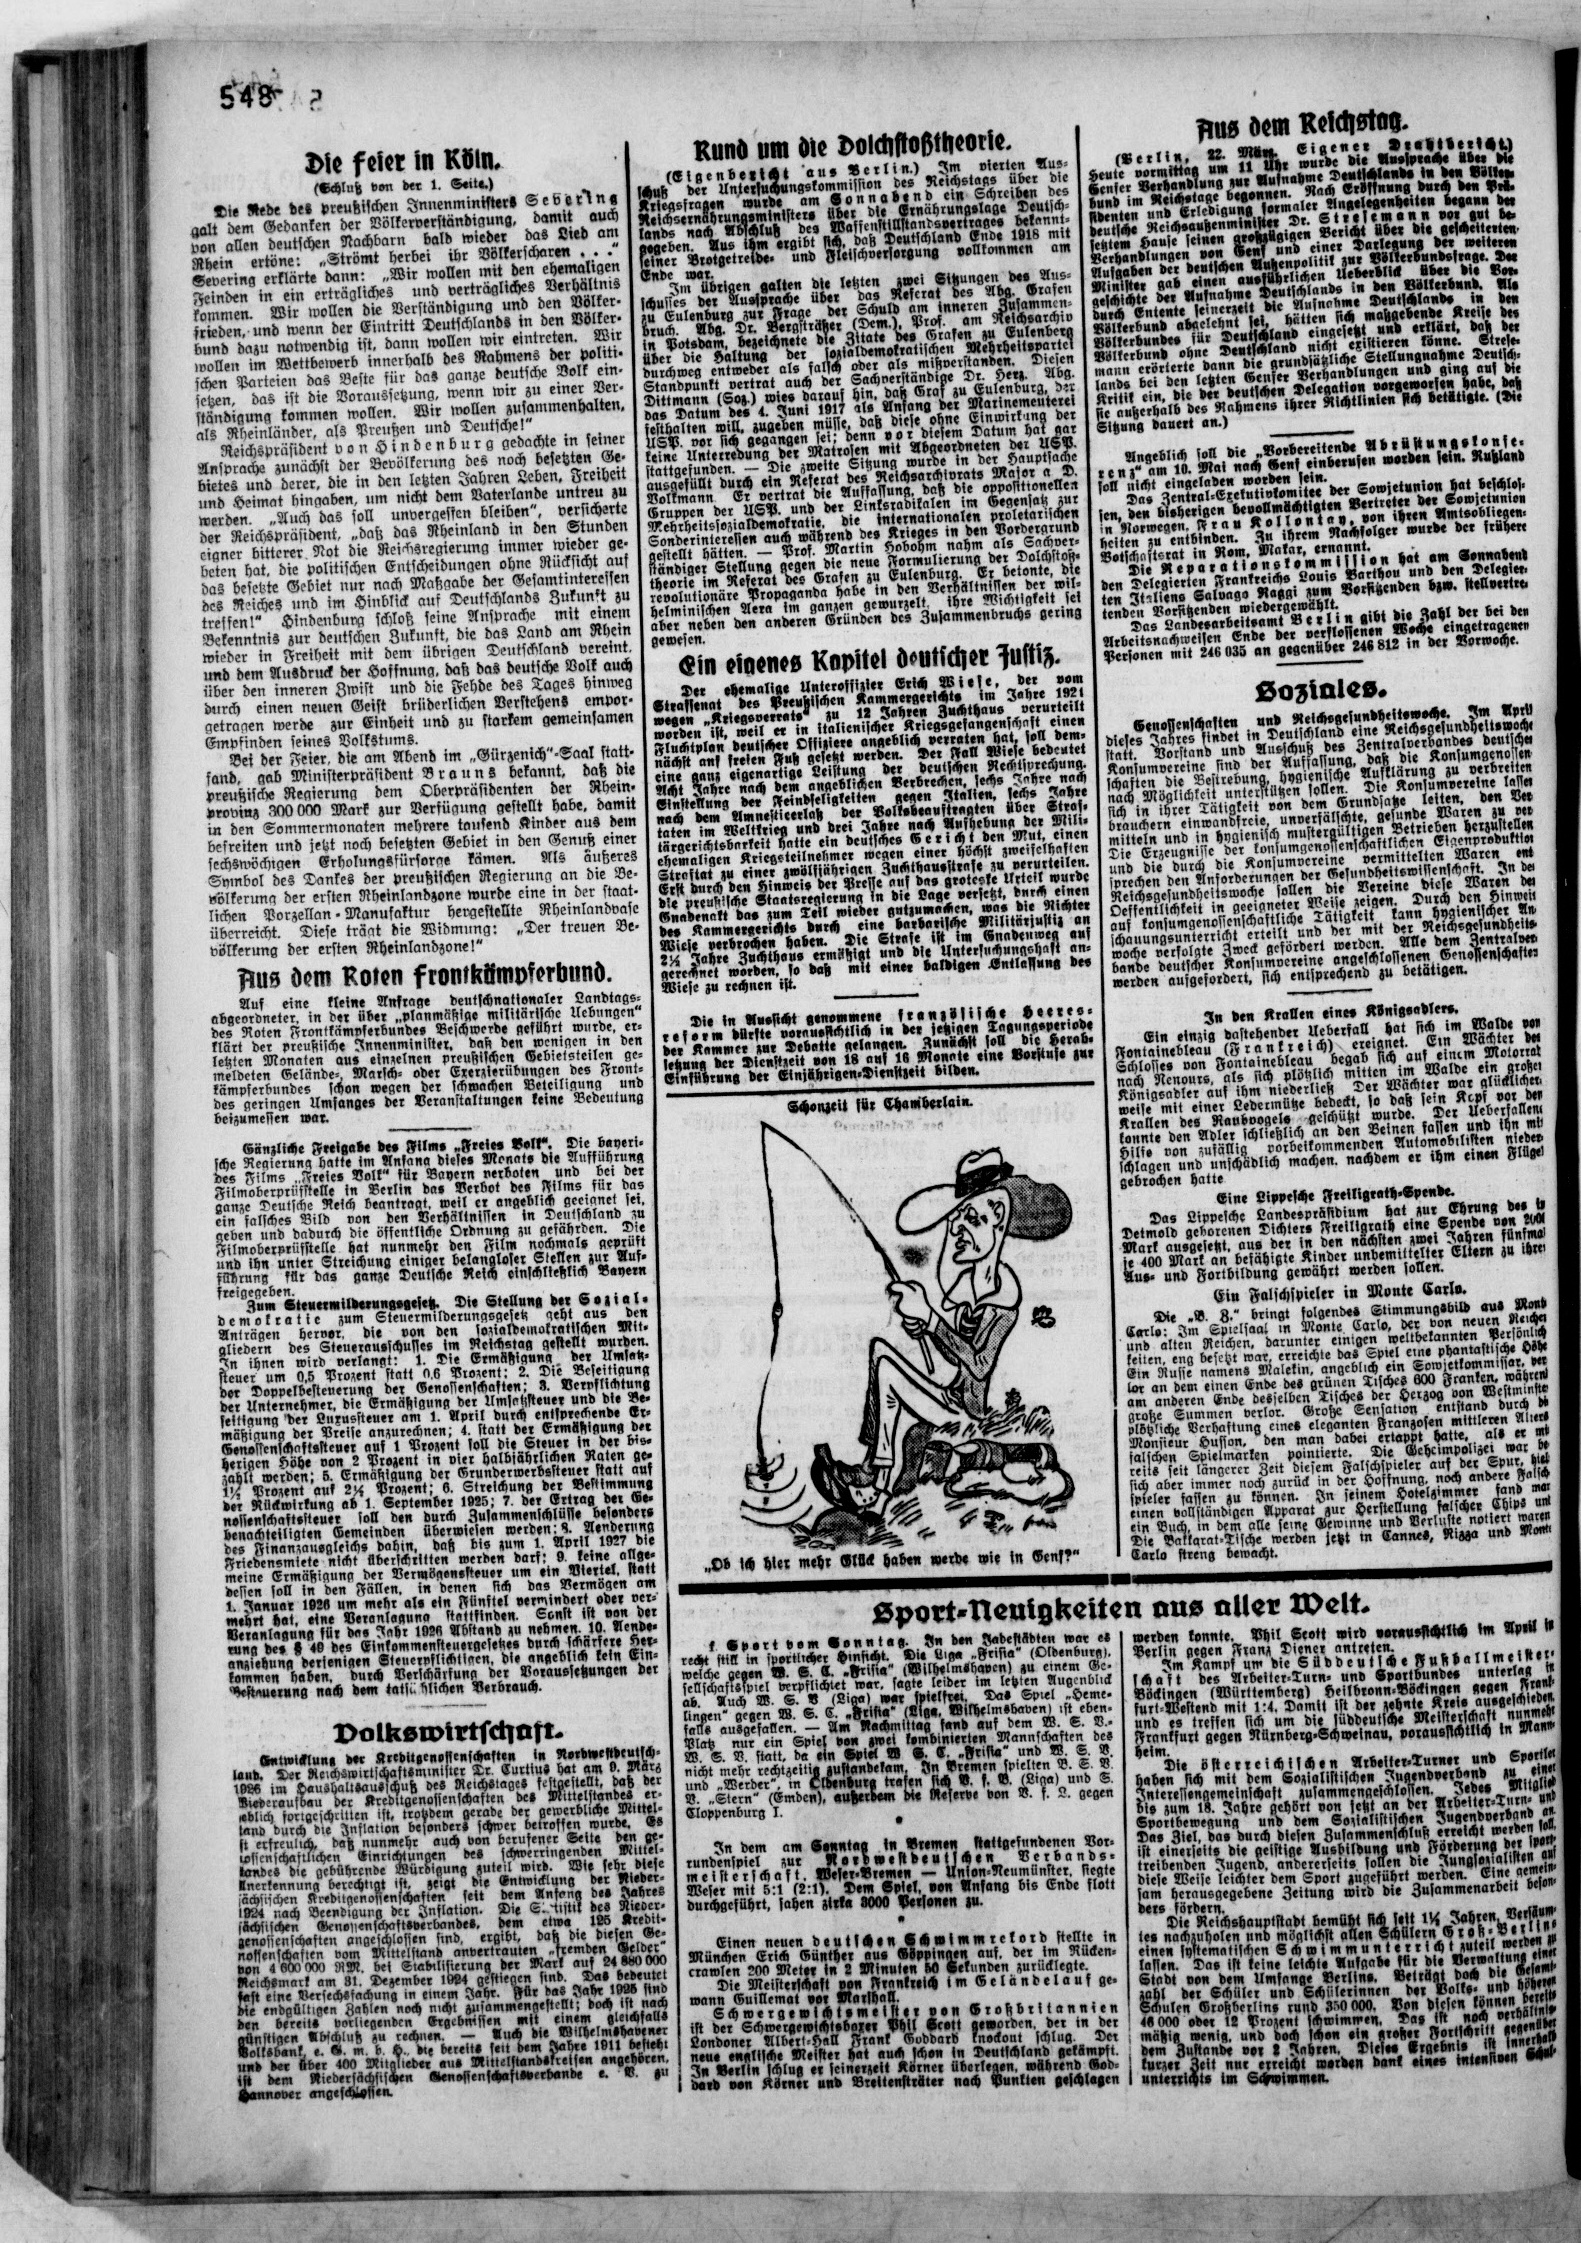 548
Die Feier in Köln.
(Schluß von der 1. Seite.)
Die Rede des preußischen Innenministers Severing
galt dem Gedanken der Völkerverständigung, damit auch
von allen deutschen Nachbarn bald wieder das Lied am
Rhein ertöne: „Strömt herbei ihr Völkerscharen . . .“
Severing erklärte dann: „Wir wollen mit den ehemaligen
Feinden in ein erträgliches und verträgliches Verhältnis
kommen. Wir wollen die Verständigung und den Völker-
frieden, und wenn der Eintritt Deutschlands in den Völker-
bund dazu notwendig ist, dann wollen wir eintreten. Wir
wollen im Wettbewerb innerhalb des Rahmens der politi-
schen Parteien das Beste für das ganze deutsche Volk ein-
setzen, das ist die Voraussetzung, wenn wir zu einer Ver-
ständigung kommen wollen. Wir wollen zusammenhalten,
als Rheinländer, als Preußen und Deutsche!“
Reichspräsident von Hindenburg gedachte in seiner
Ansprache zunächst der Bevölkerung des noch besetzten Ge-
bietes und derer, die in den letzten Jahren Leben, Freiheit
und Heimat hingaben, um nicht dem Vaterlande untreu zu
werden. „Auch das soll unvergessen bleiben“, versicherte
der Reichspräsident, „daß das Rheinland in den Stunden
eigner bitterer Not die Reichsregierung immer wieder ge-
beten hat, die politischen Entscheidungen ohne Rücksicht auf
das besetzte Gebiet nur nach Maßgabe der Gesamtinteressen
des Reiches und im Hinblick auf Deutschlands Zukunft zu
treffen!“ Hindenburg schloß seine Ansprache mit einem
Bekenntnis zur deutschen Zukunft, die das Land am Rhein
wieder in Freiheit mit dem übrigen Deutschland vereint,
und dem Ausdruck der Hoffnung, daß das deutsche Volk auch
über den inneren Zwist und die Fehde des Tages hinweg
durch einen neuen Geist brüderlichen Verstehens empor-
getragen werde zur Einheit und zu starkem gemeinsamen
Empfinden seines Volkstums.
Bei der Feier, die am Abend im „Gürzenich“-Saal statt-
fand, gab Ministerpräsident Brauns bekannt, daß die
preußische Regierung dem Oberpräsidenten der Rhein-
provinz 300 000 Mark zur Verfügung gestellt habe, damit
in den Sommermonaten mehrere tausend Kinder aus dem
befreiten und jetzt noch besetzten Gebiet in den Genuß einer
sechswöchigen Erholungsfürsorge kämen. Als äußeres
Symbol des Dankes der preußischen Regierung an die Be-
völkerung der ersten Rheinlandzone wurde eine in der staat-
lichen Porzellan-Manufaktur hergestellte Rheinlandvase
überreicht. Diese trägt die Widmung: „Der treuen Be-
völkerung der ersten Rheinlandzone!“
Aus dem Roten Frontkämpferbund.
Auf eine kleine Anfrage deutschnationaler Landtags-
abgeordneter, in der über „planmäßige militärische Uebungen“
des Roten Frontkämpferbundes Beschwerde geführt wurde, er-
klärt der preußische Innenminister, daß den wenigen in den
letzten Monaten aus einzelnen preußischen Gebietsteilen ge-
meldeten Gelände-, Marsch- oder Exerzierübungen des Front-
kämpferbundes schon wegen der schwachen Beteiligung und
des geringen Umfanges der Veranstaltungen keine Bedeutung
beizumessen war.
Gänzliche Freigabe des Films „Freies Volk“. Die bayeri-
sche Regierung hatte im Anfang dieses Monats die Aufführung
des Films „Freies Volk“ für Bayern verboten und bei der
Filmoberprüfstelle in Berlin das Verbot des Films für das
ganze Deutsche Reich beantragt, weil er angeblich geeignet sei,
ein falsches Bild von den Verhältnissen in Deutschland zu
geben und dadurch die öffentliche Ordnung zu gefährden. Die
Filmoberprüfstelle hat nunmehr den Film nochmals geprüft
und ihn unter Streichung einiger belangloser Stellen zur Auf-
führung für das ganze Deutsche Reich einschließlich Bayern
freigegeben.
Zum Steuermilderungsgesetz. Die Stellung der Sozial-
demokratie zum Steuermilderungsgesetz geht aus den
Anträgen hervor, die von den sozialdemokratischen Mit-
gliedern des Steuerausschusses im Reichstag gestellt wurden.
In ihnen wird verlangt: 1. Die Ermäßigung der Umsatz-
steuer um 0,5 Prozent statt 0,6 Prozent; 2. Die Beseitigung
der Doppelbesteuerung der Genossenschaften; 3. Verpflichtung
der Unternehmer, die Ermäßigung der Umsatzsteuer und die Be-
seitigung der Luxussteuer am 1. April durch entsprechende Er-
mäßigung der Preise anzurechnen; 4. statt der Ermäßigung der
Genossenschaftssteuer auf 1 Prozent soll die Steuer in der bis-
herigen Höhe von 2 Prozent in vier halbjährlichen Raten ge-
zahlt werden; 5. Ermäßigung der Grunderwerbssteuer statt auf
1½ Prozent auf 2½ Prozent; 6. Streichung der Bestimmung
der Rückwirkung ab 1. September 1925; 7. der Ertrag der Ge-
nossenschaftssteuer soll den durch Zusammenschlüsse besonders
benachteiligten Gemeinden überwiesen werden; 8. Aenderung
des Finanzausgleichs dahin, daß bis zum 1. April 1927 die
Friedensmiete nicht überschritten werden darf; 9. keine allge-
meine Ermäßigung der Vermögenssteuer um ein Viertel, statt
dessen soll in den Fällen, in denen sich das Vermögen am
1. Januar 1926 um mehr als ein Fünftel vermindert oder ver-
mehrt hat, eine Veranlagung stattfinden. Sonst ist von der
Veranlagung für das Jahr 1926 Abstand zu nehmen. 10. Aende-
rung des § 49 des Einkommensteuergesetzes durch schärfere Her-
anziehung derjenigen Steuerpflichtigen, die angeblich kein Ein-
kommen haben, durch Verschärfung der Voraussetzungen der
Besteuerung nach dem tatsächlichen Verbrauch.
Volkswirtschaft.
Entwicklung der Kreditgenossenschaften in Nordwestdeutsch-
land. Der Reichswirtschaftsminister Dr. Curtius hat am 9. März
1926 im Haushaltsausschuß des Reichstages festgestellt, daß der
Wiederaufbau der Kreditgenossenschaften des Mittelstandes er-
heblich fortgeschritten ist, trotzdem gerade der gewerbliche Mittel-
stand durch die Inflation besonders schwer betroffen wurde. Es
ist erfreulich, daß nunmehr auch von berufener Seite den ge-
nossenschaftlichen Einrichtungen des schwerringenden Mittel-
standes die gebührende Würdigung zuteil wird. Wie sehr diese
Anerkennung berechtigt ist, zeigt die Entwicklung der Nieder-
sächsischen Kreditgenossenschaften seit dem Anfang des Jahres
1924 nach Beendigung der Inflation. Die Statistik des Nieder-
sächsischen Genossenschaftsverbandes, dem etwa 125 Kredit-
genossenschaften angeschlossen sind, ergibt, daß die diesen Ge-
nossenschaften vom Mittelstand anvertrauten „fremden Gelder“
von 4 600 000 RM. bei Stabilisierung der Mark auf 24 880 000
Reichsmark am 31. Dezember 1924 gestiegen sind. Das bedeutet
fast eine Versechsfachung in einem Jahr. Für das Jahr 1925 sind
die endgültigen Zahlen noch nicht zusammengestellt; doch ist nach
den bereits vorliegenden Ergebnissen mit einem gleichfalls
günstigen Abschluß zu rechnen. — Auch die Wilhelmshavener
Volksbank, e. G. m. b. H., die bereits seit dem Jahre 1911 besteht
und der über 400 Mitglieder aus Mittelstandskreisen angehören,
ist dem Niedersächsischen Genossenschaftsverbande e. V. zu
Hannover angeschlossen.
Rund um die Dolchstoßtheorie.
(Eigenbericht aus Berlin.) Im vierten Aus-
schuß der Untersuchungskommission des Reichstags über die
Kriegsfragen wurde am Sonnabend ein Schreiben des
Reichsernährungsministers über die Ernährungslage Deutsch-
lands nach Abschluß des Waffenstillstandsvertrages bekannt-
gegeben. Aus ihm ergibt sich, daß Deutschland Ende 1918 mit
seiner Brotgetreide- und Fleischversorgung vollkommen am
Ende war.
Im übrigen galten die letzten zwei Sitzungen des Aus-
schusses der Aussprache über das Referat des Abg. Grafen
zu Eulenburg zur Frage der Schuld am inneren Zusammen-
bruch. Abg. Dr. Bergsträßer (Dem.), Prof. am Reichsarchiv
in Potsdam, bezeichnete die Zitate des Grafen zu Eulenberg
über die Haltung der sozialdemokratischen Mehrheitspartei
durchweg entweder als falsch oder als mißverstanden. Diesen
Standpunkt vertrat auch der Sachverständige Dr. Herz. Abg.
Dittmann (Soz.) wies darauf hin, daß Graf zu Eulenburg, der
das Datum des 4. Juni 1917 als Anfang der Marinemeuterei
festhalten will, zugeben müsse, daß diese ohne Einwirkung der
USP. vor sich gegangen sei; denn vor diesem Datum hat gar
keine Unterredung der Matrosen mit Abgeordneten der USP.
stattgefunden. — Die zweite Sitzung wurde in der Hauptsache
ausgefüllt durch ein Referat des Reichsarchivrats Major a. D.
Volkmann. Er vertrat die Auffassung, daß die oppositionellen
Gruppen der USP. und der Linksradikalen im Gegensatz zur
Mehrheitssozialdemokratie, die internationalen proletarischen
Sonderinteressen auch während des Krieges in den Vordergrund
gestellt hätten. — Prof. Martin Hobohm nahm als Sachver-
ständiger Stellung gegen die neue Formulierung der Dolchstoß-
theorie im Referat des Grafen zu Eulenburg. Er betonte, die
revolutionäre Propaganda habe in den Verhältnissen der wil-
helminischen Aera im ganzen gewurzelt, ihre Wichtigkeit sei
aber neben den anderen Gründen des Zusammenbruchs gering
gewesen.
Ein eigenes Kapitel deutscher Justiz.
Der ehemalige Unteroffizier Erich Wiese, der vom
Strafsenat des Preußischen Kammergerichts im Jahre 1921
wegen „Kriegsverrats“ zu 12 Jahren Zuchthaus verurteilt
worden ist, weil er in italienischer Kriegsgefangenschaft einen
Fluchtplan deutscher Offiziere angeblich verraten hat, soll dem-
nächst auf freien Fuß gesetzt werden. Der Fall Wiese bedeutet
eine ganz eigenartige Leistung der deutschen Rechtsprechung.
Acht Jahre nach dem angeblichen Verbrechen, sechs Jahre nach
Einstellung der Feindseligkeiten gegen Italien, sechs Jahre
nach dem Amnestieerlaß der Volksbeauftragten über Straf-
taten im Weltkrieg und drei Jahre nach Aufhebung der Mili-
tärgerichtsbarkeit hatte ein deutsches Gericht den Mut, einen
ehemaligen Kriegsteilnehmer wegen einer höchst zweifelhaften
Straftat zu einer zwölfjährigen Zuchthausstrafe zu verurteilen.
Erst durch den Hinweis der Presse auf das groteske Urteil wurde
die preußische Staatsregierung in die Lage versetzt, durch einen
Gnadenakt das zum Teil wieder gutzumachen, was die Richter
des Kammergerichts durch eine barbarische Militärjustiz an
Wiese verbrochen haben. Die Strafe ist im Gnadenweg auf
2½ Jahre Zuchthaus ermäßigt und die Untersuchungshaft an-
gerechnet worden, so daß mit einer baldigen Entlassung des
Wiese zu rechnen ist.
Die in Aussicht genommene französische Heeres-
reform dürfte voraussichtlich in der jetzigen Tagungsperiode
der Kammer zur Debatte gelangen. Zunächst soll die Herab-
setzung der Dienstzeit von 18 auf 16 Monate eine Vorstufe zur
Einführung der Einjährigen-Dienstzeit bilden.
Schonzeit für Chamberlain.
„Ob ich hier mehr Glück haben werde wie in Genf?“
Aus dem Reichstag.
(Berlin, 22. März. Eigener Drahtbericht.)
Heute vormittag um 11 Uhr wurde die Aussprache über die
Genfer Verhandlung zur Aufnahme Deutschlands in den Völker-
bund im Reichstage begonnen. Nach Eröffnung durch den Prä-
sidenten und Erledigung formaler Angelegenheiten begann der
deutsche Reichsaußenminister Dr. Stresemann vor gut be-
setztem Hause seinen großzügigen Bericht über die gescheiterten
Verhandlungen von Genf und einer Darlegung der weiteren
Aufgaben der deutschen Außenpolitik zur Völkerbundsfrage. Der
Minister gab einen ausführlichen Ueberblick über die Vor-
geschichte der Aufnahme Deutschlands in den Völkerbund. Als
durch Entente seinerzeit die Aufnahme Deutschlands in den
Völkerbund abgelehnt sei, hätten sich maßgebende Kreise des
Völkerbundes für Deutschland eingesetzt und erklärt, daß der
Völkerbund ohne Deutschland nicht existieren könne. Strese-
mann erörterte dann die grundsätzliche Stellungnahme Deutsch-
lands bei den letzten Genfer Verhandlungen und ging auf die
Kritik ein, die der deutschen Delegation vorgeworfen habe, daß
sie außerhalb des Rahmens ihrer Richtlinien sich betätigte. (Die
Sitzung dauert an.)
Angeblich soll die „Vorbereitende Abrüstungskonfe-
renz“ am 10. Mai nach Genf einberufen worden sein. Rußland
soll nicht eingeladen worden sein.
Das Zentral-Exekutivkomitee der Sowjetunion hat beschlos-
sen, den bisherigen bevollmächtigten Vertreter der Sowjetunion
in Norwegen, Frau Kollontay, von ihren Amtsobliegen-
heiten zu entbinden. Zu ihrem Nachfolger wurde der frühere
Botschaftsrat in Rom, Makar, ernannt.
Die Reparationskommission hat am Sonnabend
den Delegierten Frankreichs Louis Barthou und den Delegier-
ten Italiens Salvago Raggi zum Vorsitzenden bzw. stellvertre-
tenden Vorsitzenden wiedergewählt.
Das Landesarbeitsamt Berlin gibt die Zahl der bei den
Arbeitsnachweisen Ende der verflossenen Woche eingetragenen
Personen mit 246 035 an gegenüber 246 812 in der Vorwoche.
Soziales.
Genossenschaften und Reichsgesundheitswoche. Im April
dieses Jahres findet in Deutschland eine Reichsgesundheitswoche
statt. Vorstand und Ausschuß des Zentralverbandes deutscher
Konsumvereine sind der Auffassung, daß die Konsumgenossen
schaften die Bestrebung, hygienische Aufklärung zu verbreiten
nach Möglichkeit unterstützen sollen. Die Konsumvereine lassen
sich in ihrer Tätigkeit von dem Grundsatze leiten, den Ver
brauchern einwandfreie, unverfälschte, gesunde Waren zu ver
mitteln und in hygienisch mustergültigen Betrieben herzustellen
Die Erzeugnisse der konsumgenossenschaftlichen Eigenproduktion
und die durch die Konsumvereine vermittelten Waren ent
sprechen den Anforderungen der Gesundheitswissenschaft. In der
Reichsgesundheitswoche sollen die Vereine diese Waren der
Oeffentlichkeit in geeigneter Weise zeigen. Durch den Hinweis
auf konsumgenossenschaftliche Tätigkeit kann hygienischer An
schauungsunterricht erteilt und der mit der Reichsgesundheits-
woche verfolgte Zweck gefördert werden. Alle dem Zentralver
bande deutscher Konsumvereine angeschlossenen Genossenschaften
werden aufgefordert, sich entsprechend zu betätigen.
In den Krallen eines Königsadlers.
Ein einzig dastehender Ueberfall hat sich im Walde von
Fontainebleau (Frankreich) ereignet. Ein Wächter des
Schlosses von Fontainebleau begab sich auf einem Motorrat
nach Nenours, als sich plötzlich mitten im Walde ein großer
Königsadler auf ihm niederließ. Der Wächter war glücklicher
weise mit einer Ledermütze bedeckt, so daß sein Kopf vor den
Krallen des Raubvogels geschützt wurde. Der Ueberfallene
konnte den Adler schließlich an den Beinen fassen und ihn mit
Hilfe von zufällig vorbeikommenden Automobilisten nieder
schlagen und unschädlich machen, nachdem er ihm einen Flügel
gebrochen hatte
Eine Lippesche Freiligrath-Spende.
Das Lippesche Landespräsidium hat zur Ehrung des in
Detmold geborenen Dichters Freiligrath eine Spende von 2000
Mark ausgesetzt, aus der in den nächsten zwei Jahren fünfmal
je 400 Mark an befähigte Kinder unbemittelter Eltern zu ihrer
Aus- und Fortbildung gewährt werden sollen.
Ein Falschspieler in Monte Carlo.
Die „B. Z.“ bringt folgendes Stimmungsbild aus Monte
Carlo: Im Spielsaal in Monte Carlo, der von neuen Reichen
und alten Reichen, darunter einigen weltbekannten Persönlich
keiten, eng besetzt war, erreichte das Spiel eine phantastische Höhe
Ein Russe namens Malekin, angeblich ein Sowjetkommissar, ver
lor an dem einen Ende des grünen Tisches 600 Franken, während
am anderen Ende desselben Tisches der Herzog von Westminster
große Summen verlor. Große Sensation entstand durch die
plötzliche Verhaftung eines eleganten Franzosen mittleren Alters
Monsieur Husson, den man dabei ertappt hatte, als er mit
falschen Spielmarken pointierte. Die Geheimpolizei war be
reits seit längerer Zeit diesem Falschspieler auf der Spur, hielt
sich aber immer noch zurück in der Hoffnung, noch andere Falsch
spieler fassen zu können. In seinem Hotelzimmer fand man
einen vollständigen Apparat zur Herstellung falscher Chips und
ein Buch, in dem alle seine Gewinne und Verluste notiert waren
Die Bakkarat-Tische werden jetzt in Cannes, Nizza und Monte
Carlo streng bewacht.
Sport-Neuigkeiten aus aller Welt.
f. Sport vom Sonntag. In den Jadestädten war es
recht still in sportlicher Hinsicht. Die Liga „Frisia“ (Oldenburg),
welche gegen W. S. C. „Frisia“ (Wilhelmshaven) zu einem Ge-
sellschaftsspiel verpflichtet war, sagte leider im letzten Augenblick
ab. Auch W. S. V (Liga) war spielfrei. Das Spiel „Heme-
lingen“ gegen W. S. C. „Frisia“ (Liga, Wilhelmshaven) ist eben-
falls ausgefallen. — Am Nachmittag fand auf dem W. S. V.-
Platz nur ein Spiel von zwei kombinierten Mannschaften des
W. S. V. statt, da ein Spiel W. S. C. „Frisia“ und W. S. V.
nicht mehr rechtzeitig zustandekam. In Bremen spielten B. S. V.
und „Werder“, in Oldenburg trafen sich V. f. B. (Liga) und S.
V. „Stern“ (Emden), außerdem die Reserve von V. f. L. gegen
Cloppenburg I.
*
In dem am Sonntag in Bremen stattgefundenen Vor-
rundenspiel zur Nordwestdeutschen Verbands-
meisterschaft, Weser-Bremen — Union-Neumünster, siegte
Weser mit 5:1 (2:1). Dem Spiel, von Anfang bis Ende flott
durchgeführt, sahen zirka 3000 Personen zu.
*
Einen neuen deutschen Schwimmrekord stellte in
München Erich Günther aus Göppingen auf, der im Rücken-
crawlen 200 Meter in 2 Minuten 50 Sekunden zurücklegte.
Die Meisterschaft von Frankreich im Geländelauf ge-
wann Guillemat vor Marshall.
Schwergewichtsmeister von Großbritannien
ist der Schwergewichtsboxer Phil Scott geworden, der in der
Londoner Albert-Hall Frank Goddard knockout schlug. Der
neue englische Meister hat auch schon in Deutschland gekämpft.
In Berlin schlug er seinerzeit Körner überlegen, während God-
dard von Körner und Breitensträter nach Punkten geschlagen
werden konnte. Phil Scott wird voraussichtlich im April in
Berlin gegen Franz Diener antreten.
Im Kampf um die Süddeutsche Fußballmeister-
schaft des Arbeiter-Turn- und Sportbundes unterlag in
Böckingen (Württemberg) Heilbronn-Böckingen gegen Frank-
furt-Westend mit 1:4. Damit ist der zehnte Kreis ausgeschieden
und es treffen sich um die süddeutsche Meisterschaft nunmehr
Frankfurt gegen Nürnberg-Schweinau, voraussichtlich in Mann-
heim.
Die österreichischen Arbeiter-Turner und Sportler
haben sich mit dem Sozialistischen Jugendverband zu einer
Interessengemeinschaft zusammengeschlossen. Jedes Mitglied
bis zum 18. Jahre gehört von jetzt an der Arbeiter-Turn- und
Sportbewegung und dem Sozialistischen Jugendverband an.
Das Ziel, das durch diesen Zusammenschluß erreicht werden soll,
ist einerseits die geistige Ausbildung und Förderung der sport-
treibenden Jugend, andererseits sollen die Jungsozialisten auf
diese Weise leichter dem Sport zugeführt werden. Eine gemein-
sam herausgegebene Zeitung wird die Zusammenarbeit beson-
ders fördern.
Die Reichshauptstadt bemüht sich seit 1½ Jahren, Versäum-
tes nachzuholen und möglichst allen Schülern Groß-Berlins
einen systematischen Schwimmunterricht zuteil werden zu
lassen. Das ist keine leichte Aufgabe für die Verwaltung einer
Stadt von dem Umfange Berlins. Beträgt doch die Gesamt-
zahl der Schüler und Schülerinnen der Volks- und höheren
Schulen Großberlins rund 350 000. Von diesen können bereits
46 000 oder 12 Prozent schwimmen. Das ist noch verhältnis-
mäßig wenig, und doch schon ein großer Fortschritt gegenüber
dem Zustande vor 2 Jahren. Dieses Ergebnis ist innerhalb
kurzer Zeit nur erreicht worden dank eines intensiven Schul-
unterrichts im Schwimmen.